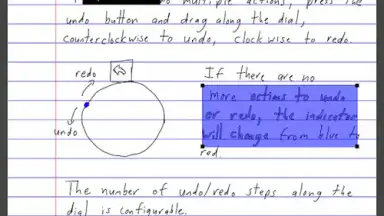 multiple actions, press the
undo button and drag along the dial,
counterclockwise to undo, clockwise to redo.
redo
undo
If there are no
more actions to undo
or redo, the indicator
will change from blue to
red.
The number of undo/redo steps along the
dial is configurable.